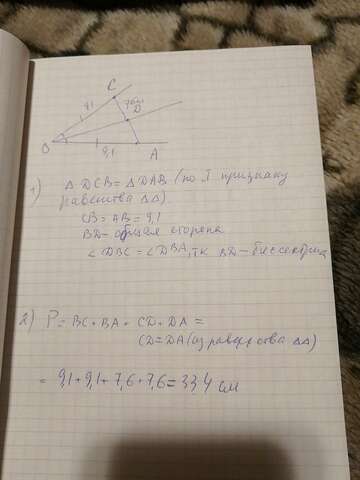 C
9,1
7,6см
D
B
9,1
A
1) Δ DCB = Δ DAB (по I признаку
равенства ΔΔ).
CB = AB = 9,1
BD - общая сторона
∠ DBC = ∠ DBA, тк BD - биссектриса
2) P = BC + BA + CD + DA =
CD = DA (из равенства ΔΔ)
= 9,1 + 9,1 + 7,6 + 7,6 = 33,4 см